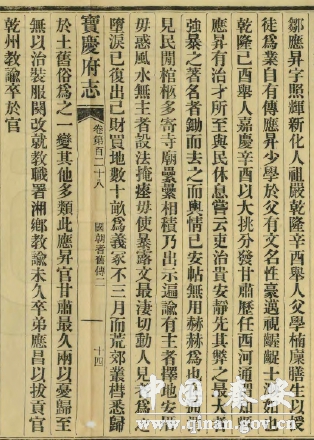 鄒應昇字照輝新化人祖嚴乾隆辛酉舉人父學楠廩膳生以授
徒爲業自有傳應昇少學於父有文名性豪邁視齷齪士漠如也
乾隆己酉舉人嘉慶辛酉以大挑分發甘肅歷任西河通渭
應昇有治才所至與民休息嘗云吏治貴安靜先其弊之最大
強暴之著名者鋤而去之而輿情已安帖無用赫赫爲也
見民間棺柩多寄寺廟纍纍相積乃出示遍諭有主者擇地安
毋惑風水無主者設法掩瘞毋使暴露文最淒切動人見者爲
寶慶府志
卷第百二十八
國朝耆舊傳二
十四
墮淚已復出己財買地數十畝爲義冢不三月而荒郊叢櫬悉歸
於土舊俗爲之一變其他多類此應昇官甘肅最久兩以憂歸至
無以治裝服闋改就教職署湘鄉教諭未久卒弟應昌以拔貢官
乾州教諭卒於官
中国秦安
www.qinan.gov.cn